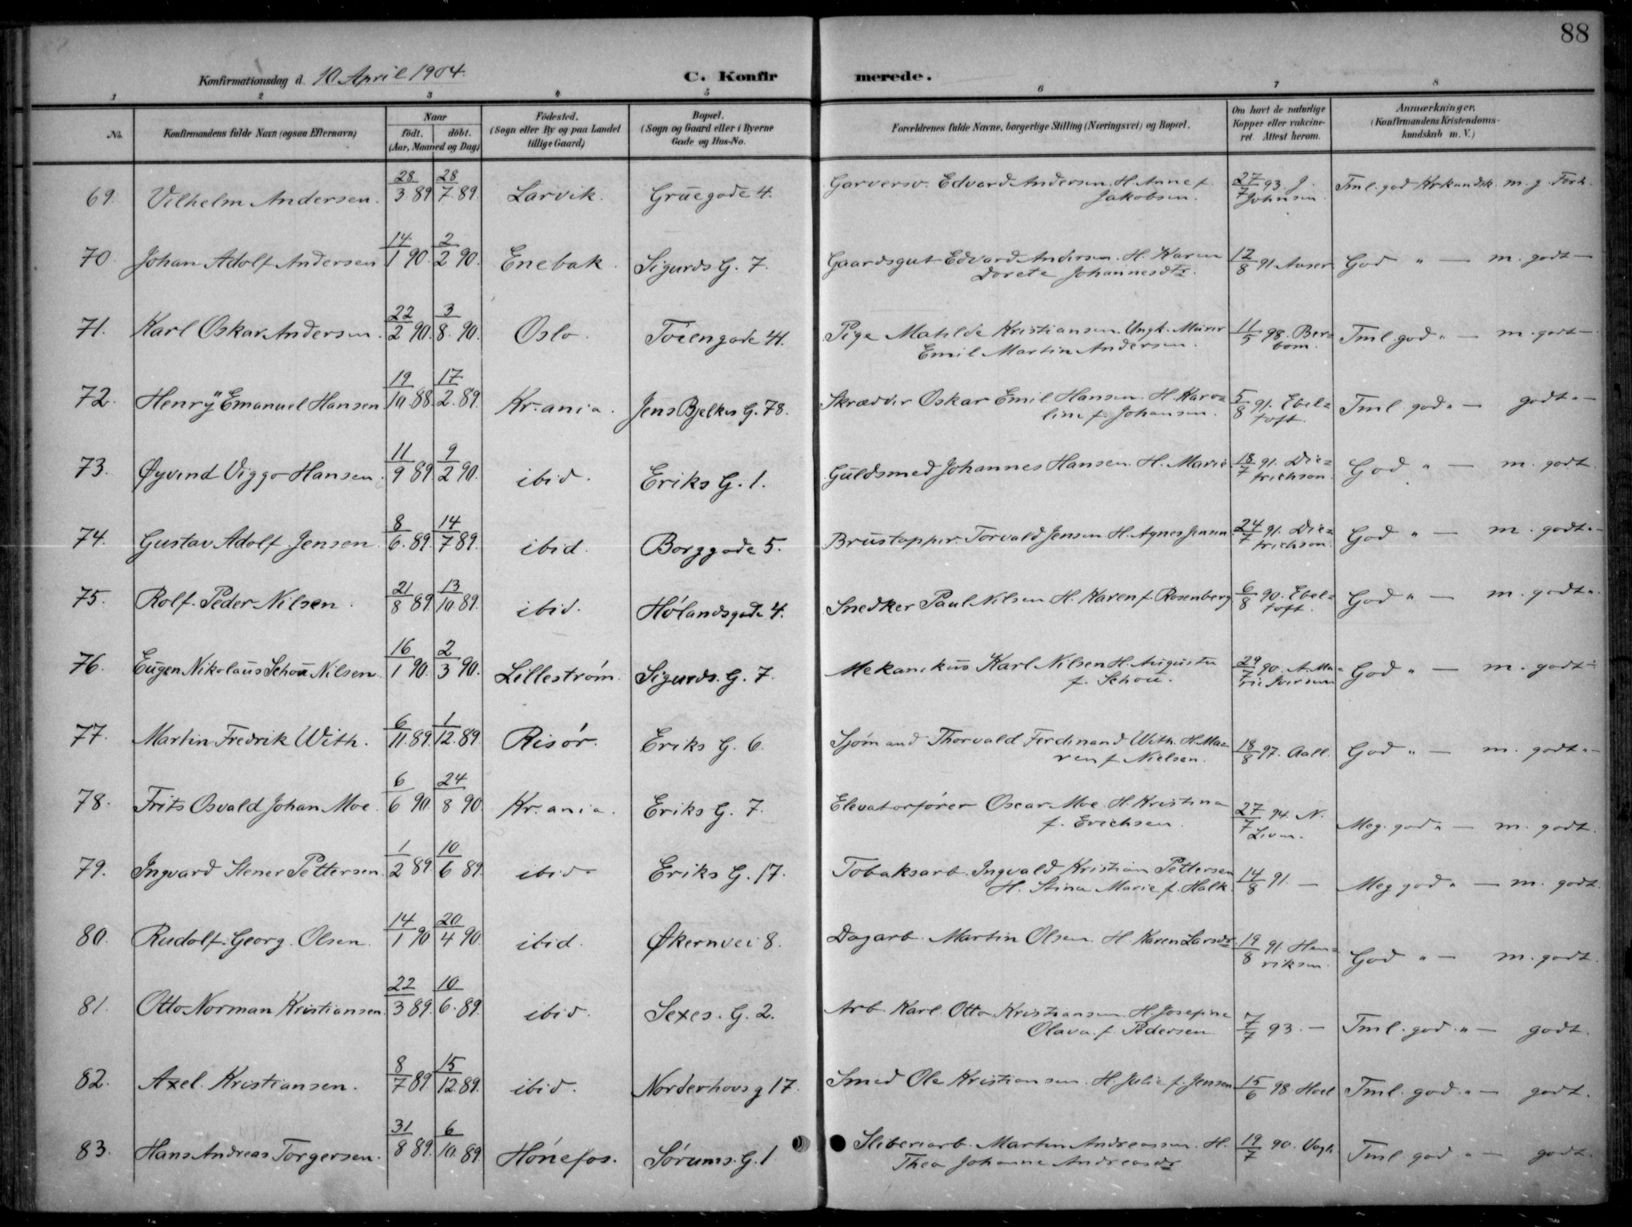 88
Konfirmationsdag d. 10 April 1904.
C. Konfirmerede.
1 2 3 4 5 6 7 8
No. Konfirmandens fulde Navn (ogsaa Efternavn) Naar født. døbt. (Aar, Maaned og Dag) Fødested. (Sogn eller By og paa Landet tillige Gaard) Bopæl. (Sogn og Gaard eller i Byerne Gade og Hus-No. Forældrenes fulde Navne, borgerlige Stilling (Næringsvei) og Bopæl. Om havt de naturlige Kopper eller vaccineret. Attest herom. Anmærkninger. (Konfirmandens Kristendomskundskab m. V.)
69. Vilhelm Andersen. 28/3 89 28/7 89. Larvik. Grüegade 4. Garversv. Edvard Andersen H. Anne f. Jakobsen. 27/7 93. J. Johnsen. Tml. god Krkundsk. m. g. Forh.
70. Johan Adolf Andersen 14/1 90. 2/2 90. Enebak. Sigurds G. 7. Gaardsgut Edvard Andersen. H. Karen Dorete Johannesdtr. 12/8 91. God " — m. godt —
71. Karl Oskar Andersen. 22/2 90. 3/8. 90. Oslo. Töiengade 44. Pige Matilde Kristiansen. Ungk. Murer Emil Martin Andersen. 11/5 98. Tml god " — m. godt —
72. Henrÿ Emanuel Hansen 19/10 88. 17/2. 89. Kr.ania. Jens Bjelkes G. 78. Skrædder Oskar Emil Hansen. H. Karoline f. Johansen. 5/8 91. Ebeltoft. Tml. god " — godt " —
73. Øyvind Viggo Hansen. 11/9 89. 9/2 90. ibid. Eriks G. 1. Guldsmed Johannes Hansen. H. Marie 18/7 91. Dietrichson. God " — m. godt
74. Gustav Adolf Jensen. 8/6. 89. 14/7 89. ibid. Borggade 5. Brustapper Torvald Jensen H. Agnes Jensen 24/7 91. Dietrichson. God " — m. godt " —
75. Rolf Peder Nilsen. 21/8 89. 13/10 89. ibid. Hølandsgade 4. Snedker Paul Nilsen H. Karen f. Rosenberg 6/8 90. Ebeltoft. God " — m. godt " —
76. Eugen Nikolaus Schou Nilsen. 16/1 90. 2/3 90. Lillestrøm. Sigurds. G. 7. Mekanikus Karl Nilsen H. Augusta f. Schou. 29/7 90. A. Marie Iversen God " — m. godt —
77. Martin Fredrik With. 6/11. 89. 1/12. 89 Risør. Eriks G. 6. Sjømand Thorvald Ferdinand With. H. Maren f. Nielsen. 18/8 97. Aall. God " — m. godt " —
78. Frits Osvald Johan Moe. 6/6 90. 24/8 90. Kr.ania. Eriks G. 7. Elevatorfører Oscar Moe H. Kristina f. Erichsen. 27/7 94. N. Meg. god " — m. godt.
79. Ingvard Stener Pettersen. 1/2 89. 10/6 89. ibid. Eriks G. 17. Tobaksarb. Ingvald Kristian Pettersen H. Stina Marie f. Halk. 14/8 91. — Meg god " — m. godt.
80. Rudolf Georg. Olsen. 14/1 90 20/4 90. ibid. Økernvei 8. Dagarb. Martin Olsen H. Karen Larsdr. 19/8 91. Henriksen. God " — m. godt.
81. Otto Norman Kristiansen. 22/3 89. 10/6. 89. ibid. Sexes. G. 2. Arb Karl Otto Kristiansen. H. Josefine Olava f. Pedersen 7/7 93. — Tml. god. " — godt.
82. Axel. Kristiansen. 8/7 89. 15/12 89. ibid. Norderhovsg 17. Smed Ole Kristiansen. H. Julie f. Jensen 15/6 98 Hoel Tml. god. " — godt.
83. Hans Andreas Torgersen. 31/8 89. 6/10. 89. Hønefos. Sørums. G. 1. Sliberiarb. Martin Andreassen. H. Thea Johanne Andreasdr 19/7 90. Vogt. Tml. god " — godt.